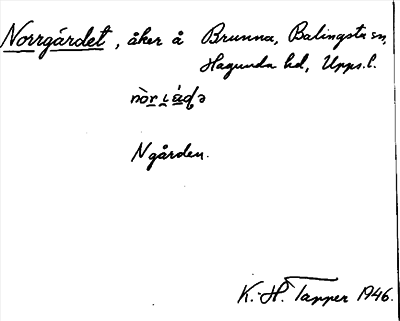 Norrgärdet, åker å Brunna, Balingsta sn,
Hagunda hd, Upps. l.
Ngården.
K.-H. Tapper 1946.